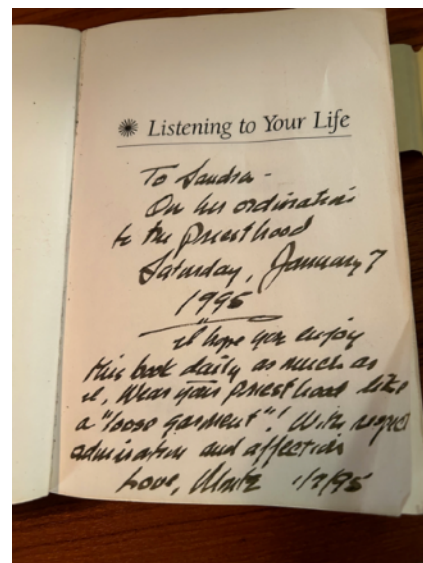 Listening to Your Life
To Sandra -
On her ordination
to the Priesthood
Saturday, January 7
1995
I hope you enjoy
this book daily as much as
I. Wear your Priesthood like
a "loose garment"! With respect
admiration and affection
Love, 1/7/95